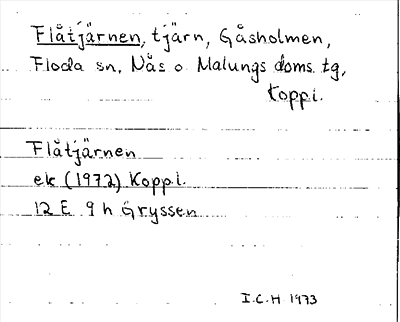 Flåtjärnen, tjärn, Gåsholmen,
Floda sn, Nås o Malungs doms. tg,
Koppi.
Flåtjärnen
ek (1972) Koppi.
12 E 9 h Gryssen
I.C.H 1973